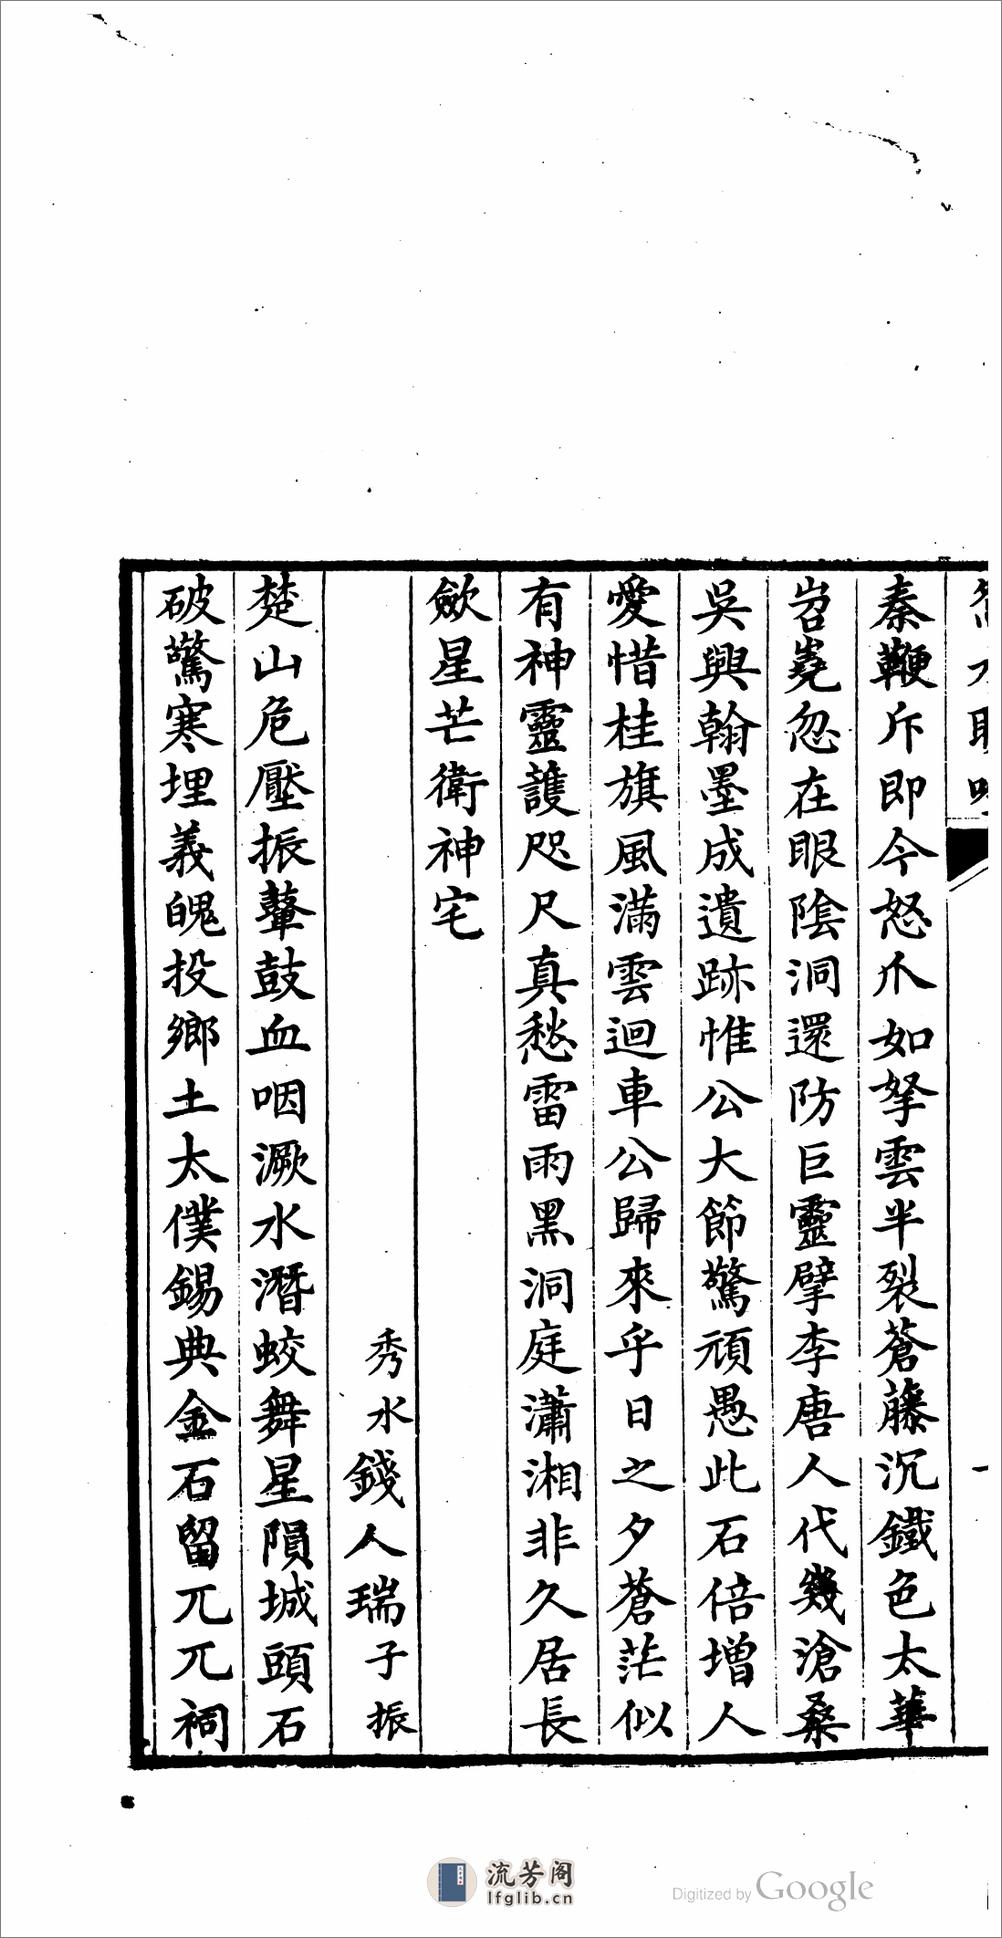 秦鞭斥即今怒爪如拏雲半裂蒼藤沉鐵色太華
岧嶤忽在眼陰洞還防巨靈擘李唐人代幾滄桑
吳興翰墨成遺跡惟公大節驚頑愚此石倍增人
愛惜桂旗風滿雲迴車公歸來乎日之夕蒼茫似
有神靈護咫尺真愁雷雨黑洞庭瀟湘非久居長
歛星芒衛神宅
秀水錢人瑞子振
楚山危壓振鼙鼓血咽澱水潛蛟舞星隕城頭石
破驚寒埋義魄投鄉土太僕錫典金石留兀兀祠
流芳阁
lfglib.cn
Digitized by Google